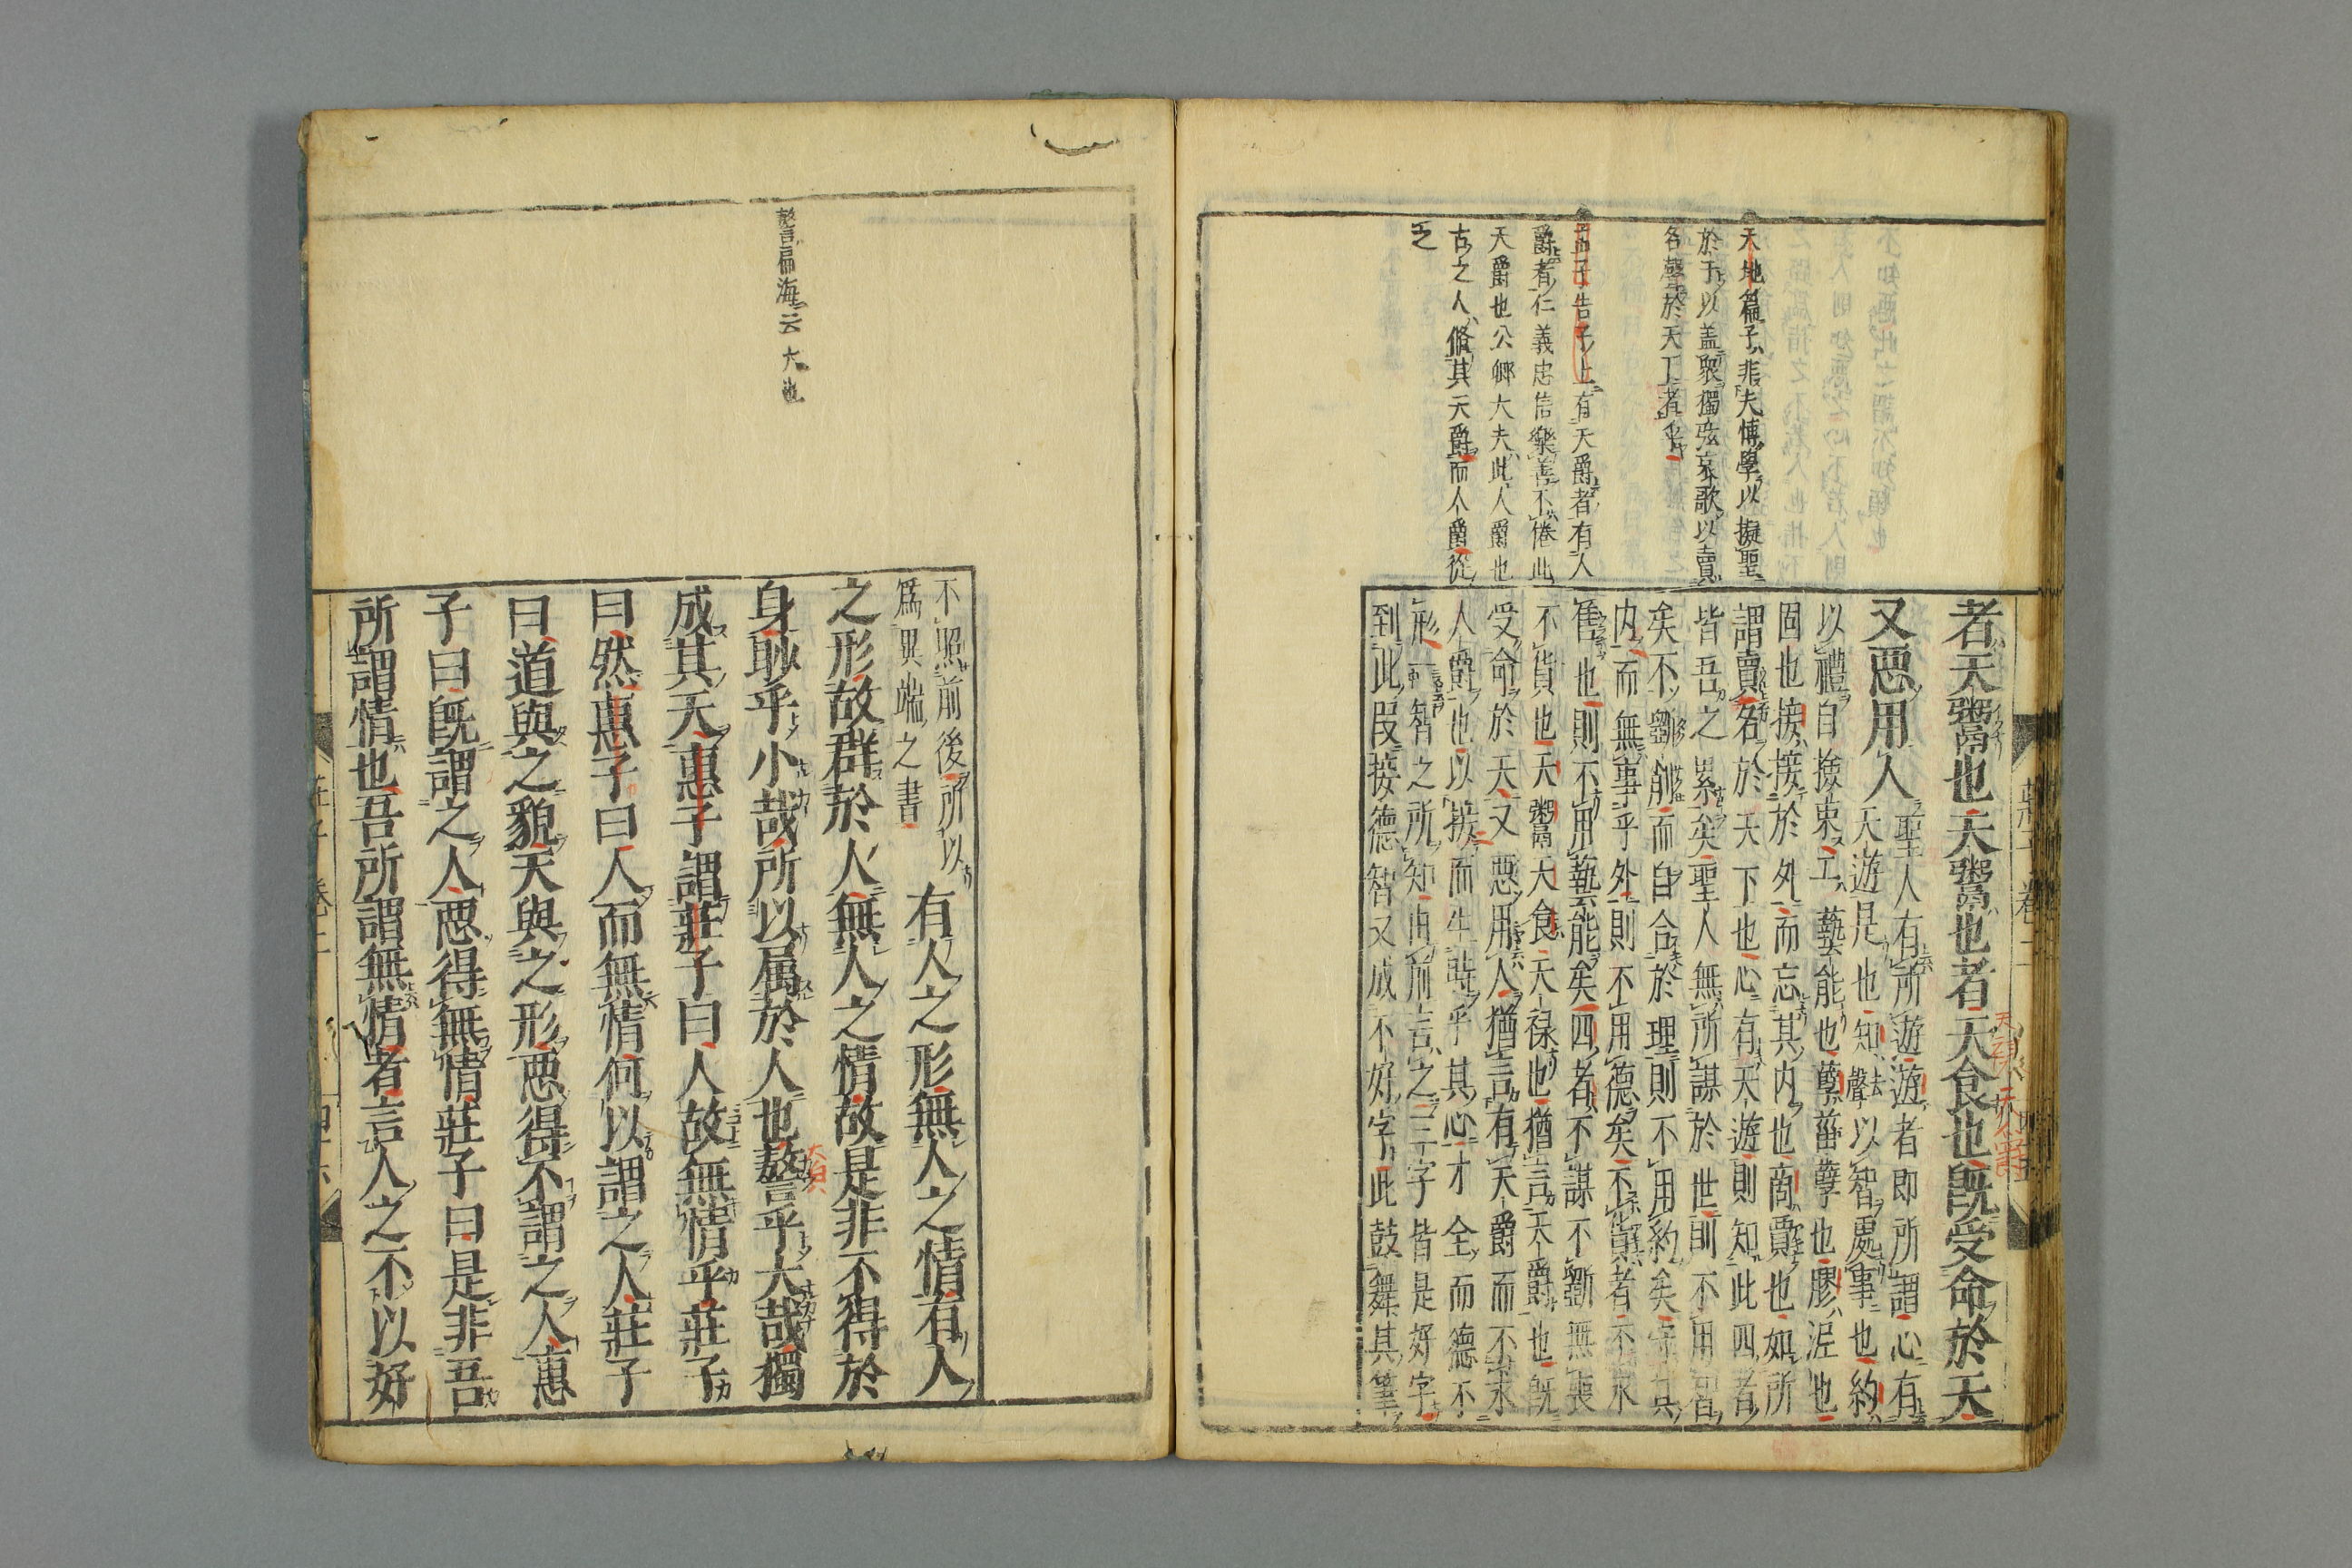 天地篇子非夫博學以擬聖
於于以盖眾獨弦哀歌以賣
名聲於天丁者乎
孟子告子上有天爵者有人
爵者仁義忠信樂善不倦此
天爵也公卿大夫此人爵也
古之人脩其天爵而人爵從
之
者天鬻也天鬻也者天食也既受命於天
又惡用人
聖人有所遊遊者即所謂心有
天遊是也知去聲以智處事也約
以禮自撿束工藝能也孽菑孽也膠泥也
固也接接於外而忘其内也商賈也如所
謂賣名於天下也心有天遊則知此四者
皆吾之累矣聖人無所謀於世則不用智
矣不斵削而自合於理則不用約矣
内而無事乎外則不用德矣不貨者不求
售也則不用藝能矣四者不謀不斵無喪
不貨也天鬻天食天祿也猶言天爵也既
受命於天又惡用人猶言有天爵而不求
人爵也以接而生時乎其心才全而德不
形智之所知由前言之三字皆是好字
到此段接德智又成不好字此鼓舞其筆
莊子卷二
謷篇海云大也
不照前後所以
為異端之書
有人之形無人之情有人
之形故群於人無人之情故是非不得於
身眇乎小哉所以属於人也謷乎大哉獨
成其天惠子謂莊子曰人故無情乎莊子
曰然惠子曰人而無情何以謂之人莊子
曰道與之貌天與之形惡得不謂之人惠
子曰既謂之人惡得無情莊子曰是非吾
所謂情也吾所謂無情者言人之不以好